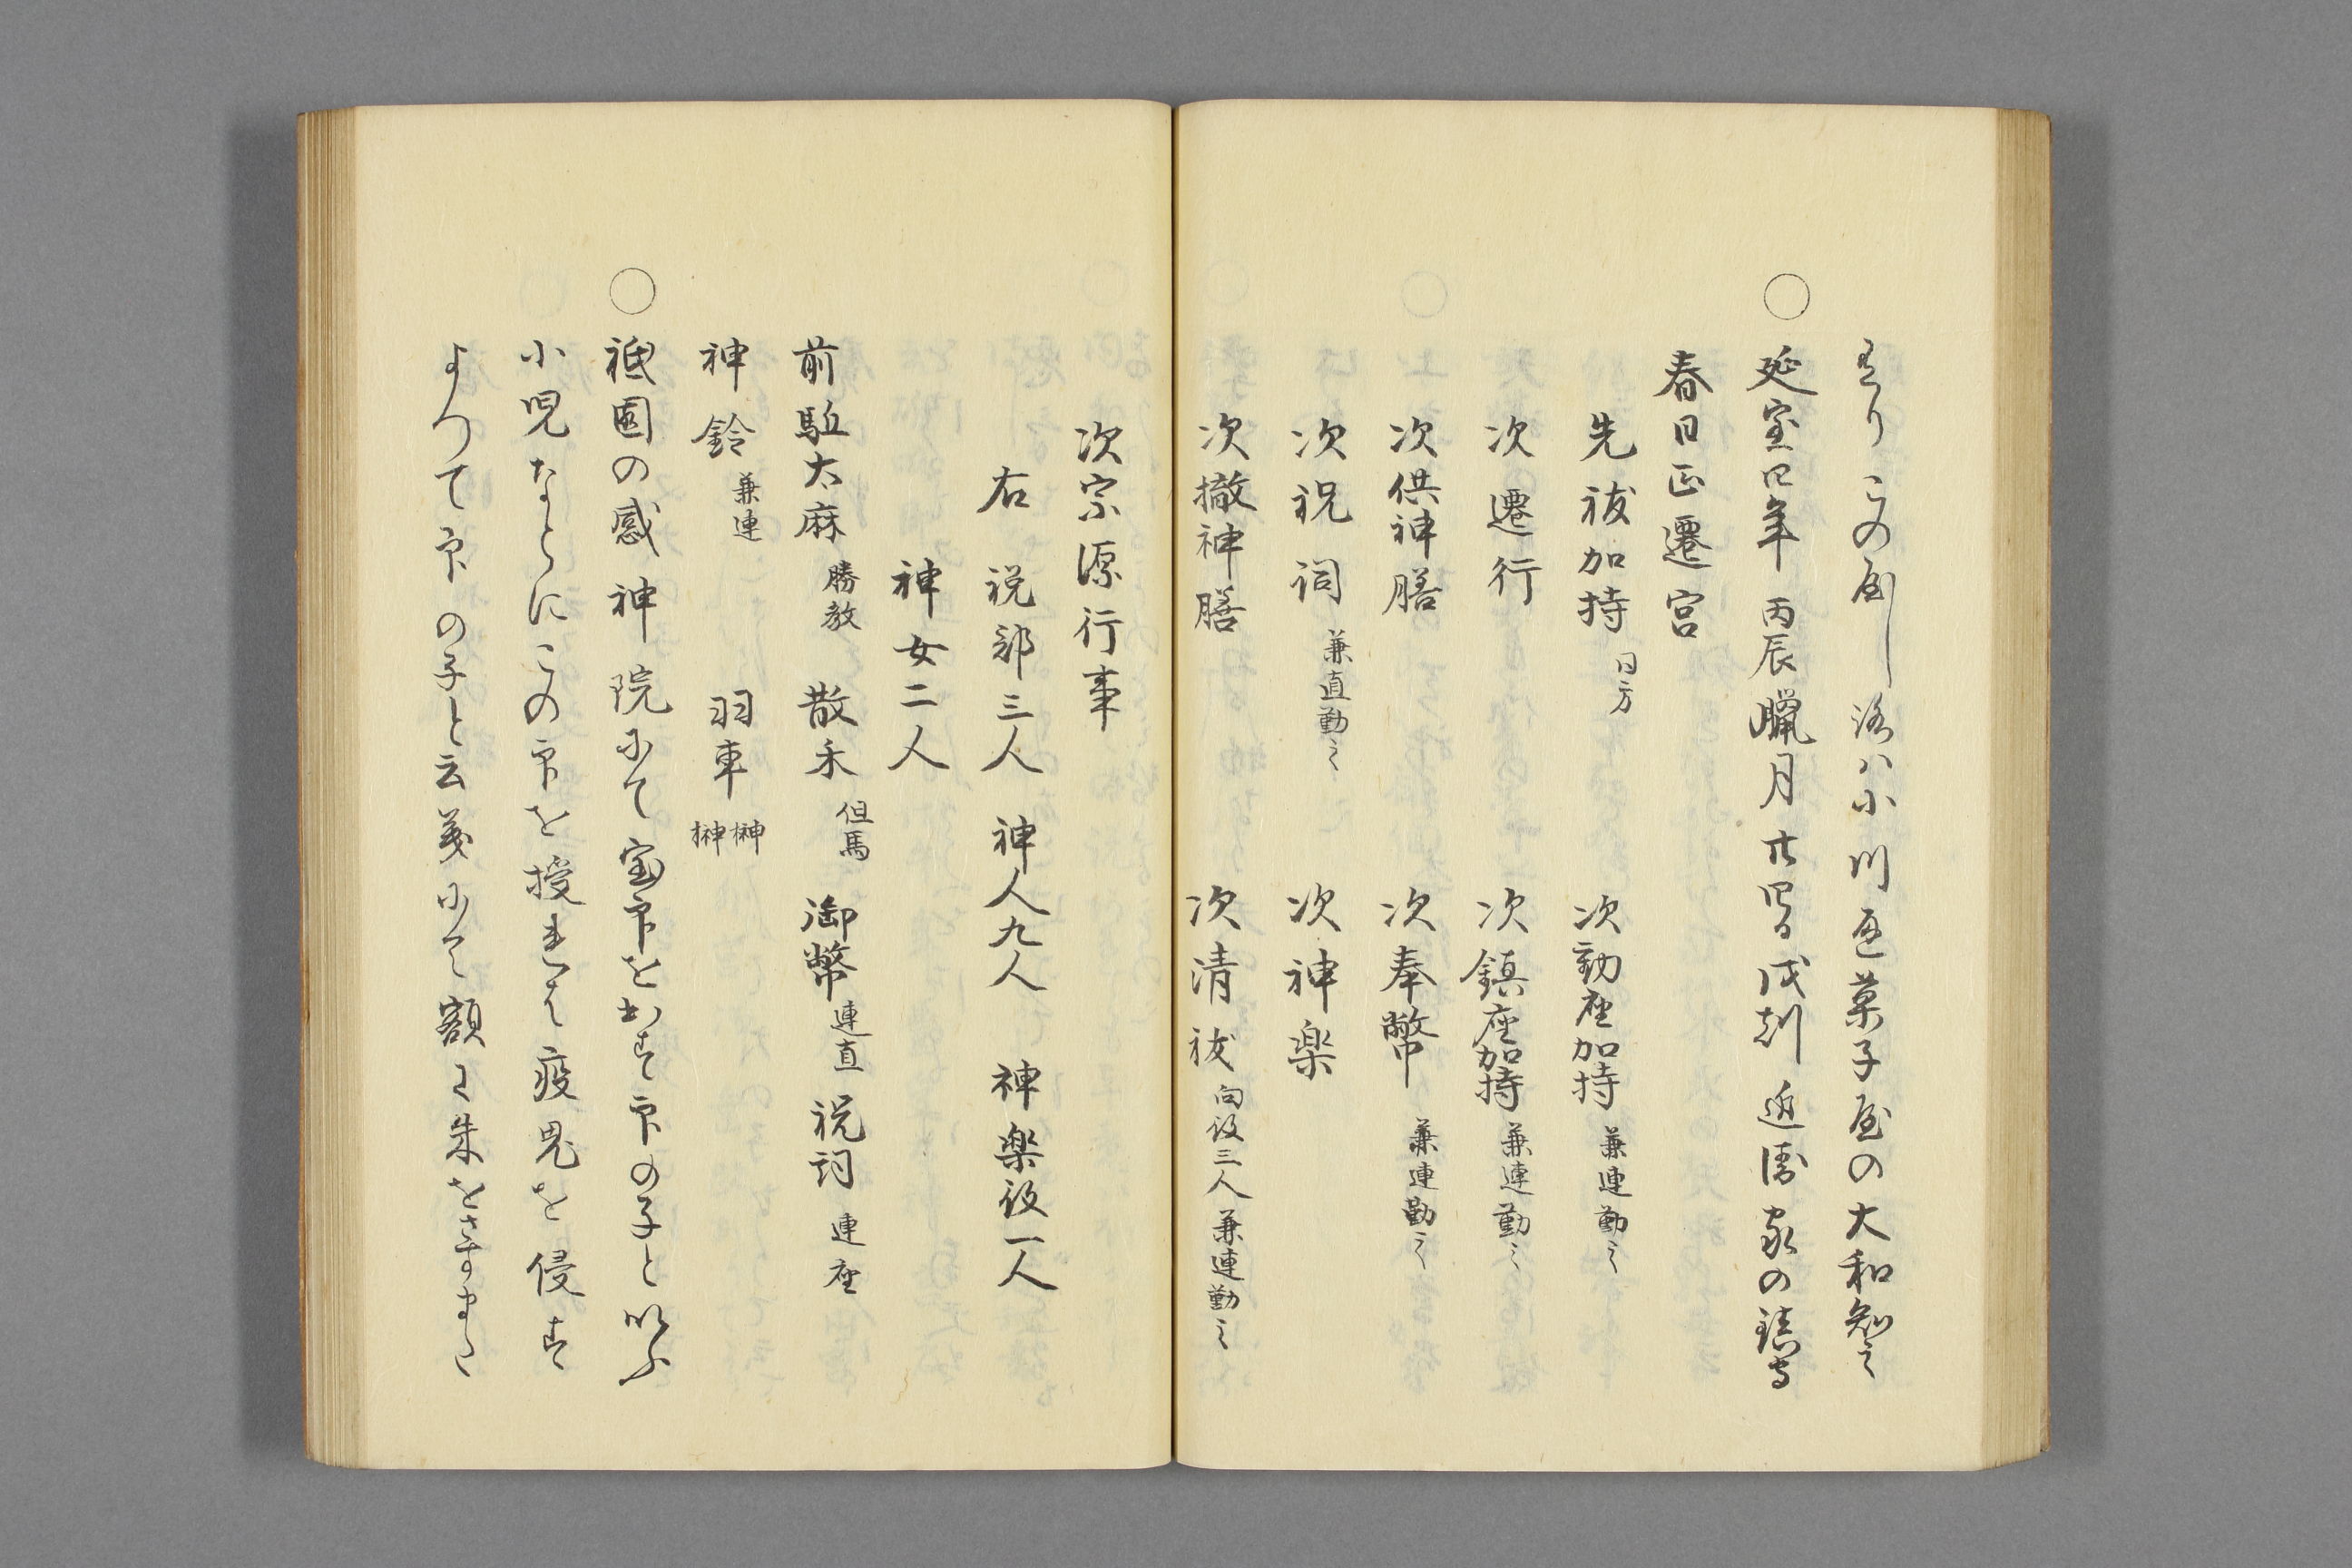 たりこの製し様ハ小川通菓子屋の大和知之
○延宝四年丙辰臘月廿四日戌刻近衛家の鎮守
春日正遷宮
先祓加持 日方 次勧座加持 兼連勤之
次遷行 次鎮座加持 兼連勤之
次供神膳 次奉幣 兼連勤之
次祝詞 兼直勤之 次神楽
次撤神膳 次清祓 向役三人兼連勤之
次宗源行事
右 祝部三人 神人九人 神楽役一人
神女二人
前駈大麻 勝教 散米 但馬 御幣 連直 祝詞 連座
神鈴 兼連 羽車 榊榊
○祇園の感神院にて宝印を出す印の子といふ
小児なとにこの印を授れは疫鬼を侵す
よつて印の子と云義にて額に朱をさすまた